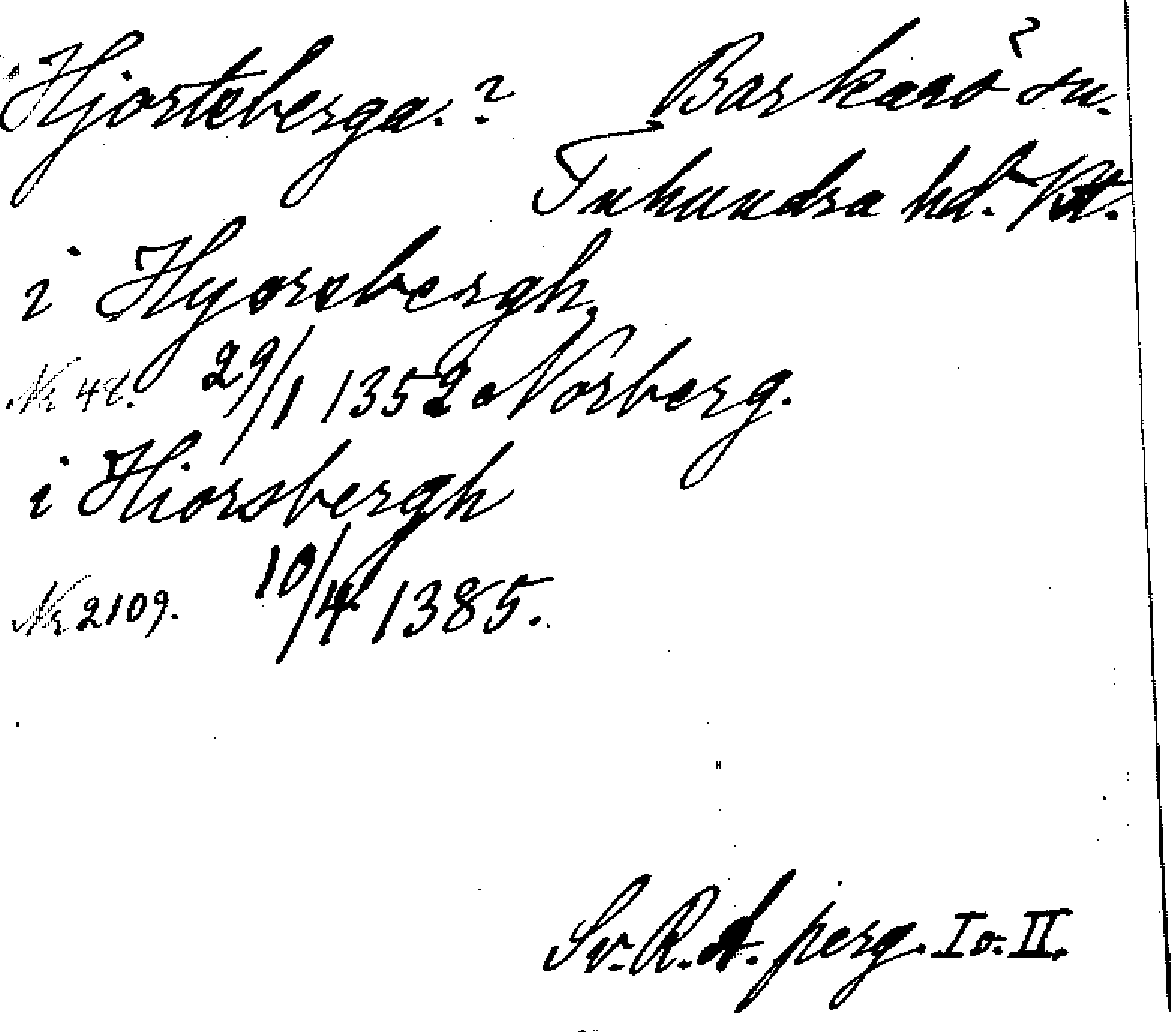 Hjorteberga.? Barkarö sn. ?
Tuhundra hd. Vt.
i Hyorsbergh,
Nr 48. 29/1 1352 Norberg.
i Hiorsbergh
Nr 2109. 10/4 1385.
Sv. R. A. perg. I o. II.